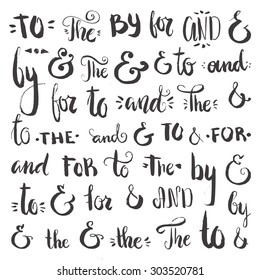 TO The BY for AND &
by & The & & to and
for to and The &
to THE and & TO & FOR
and FOR to The by &
to & for & AND & by
& the & the The to &
shutterstock
IMAGE ID: 303520781
www.shutterstock.com